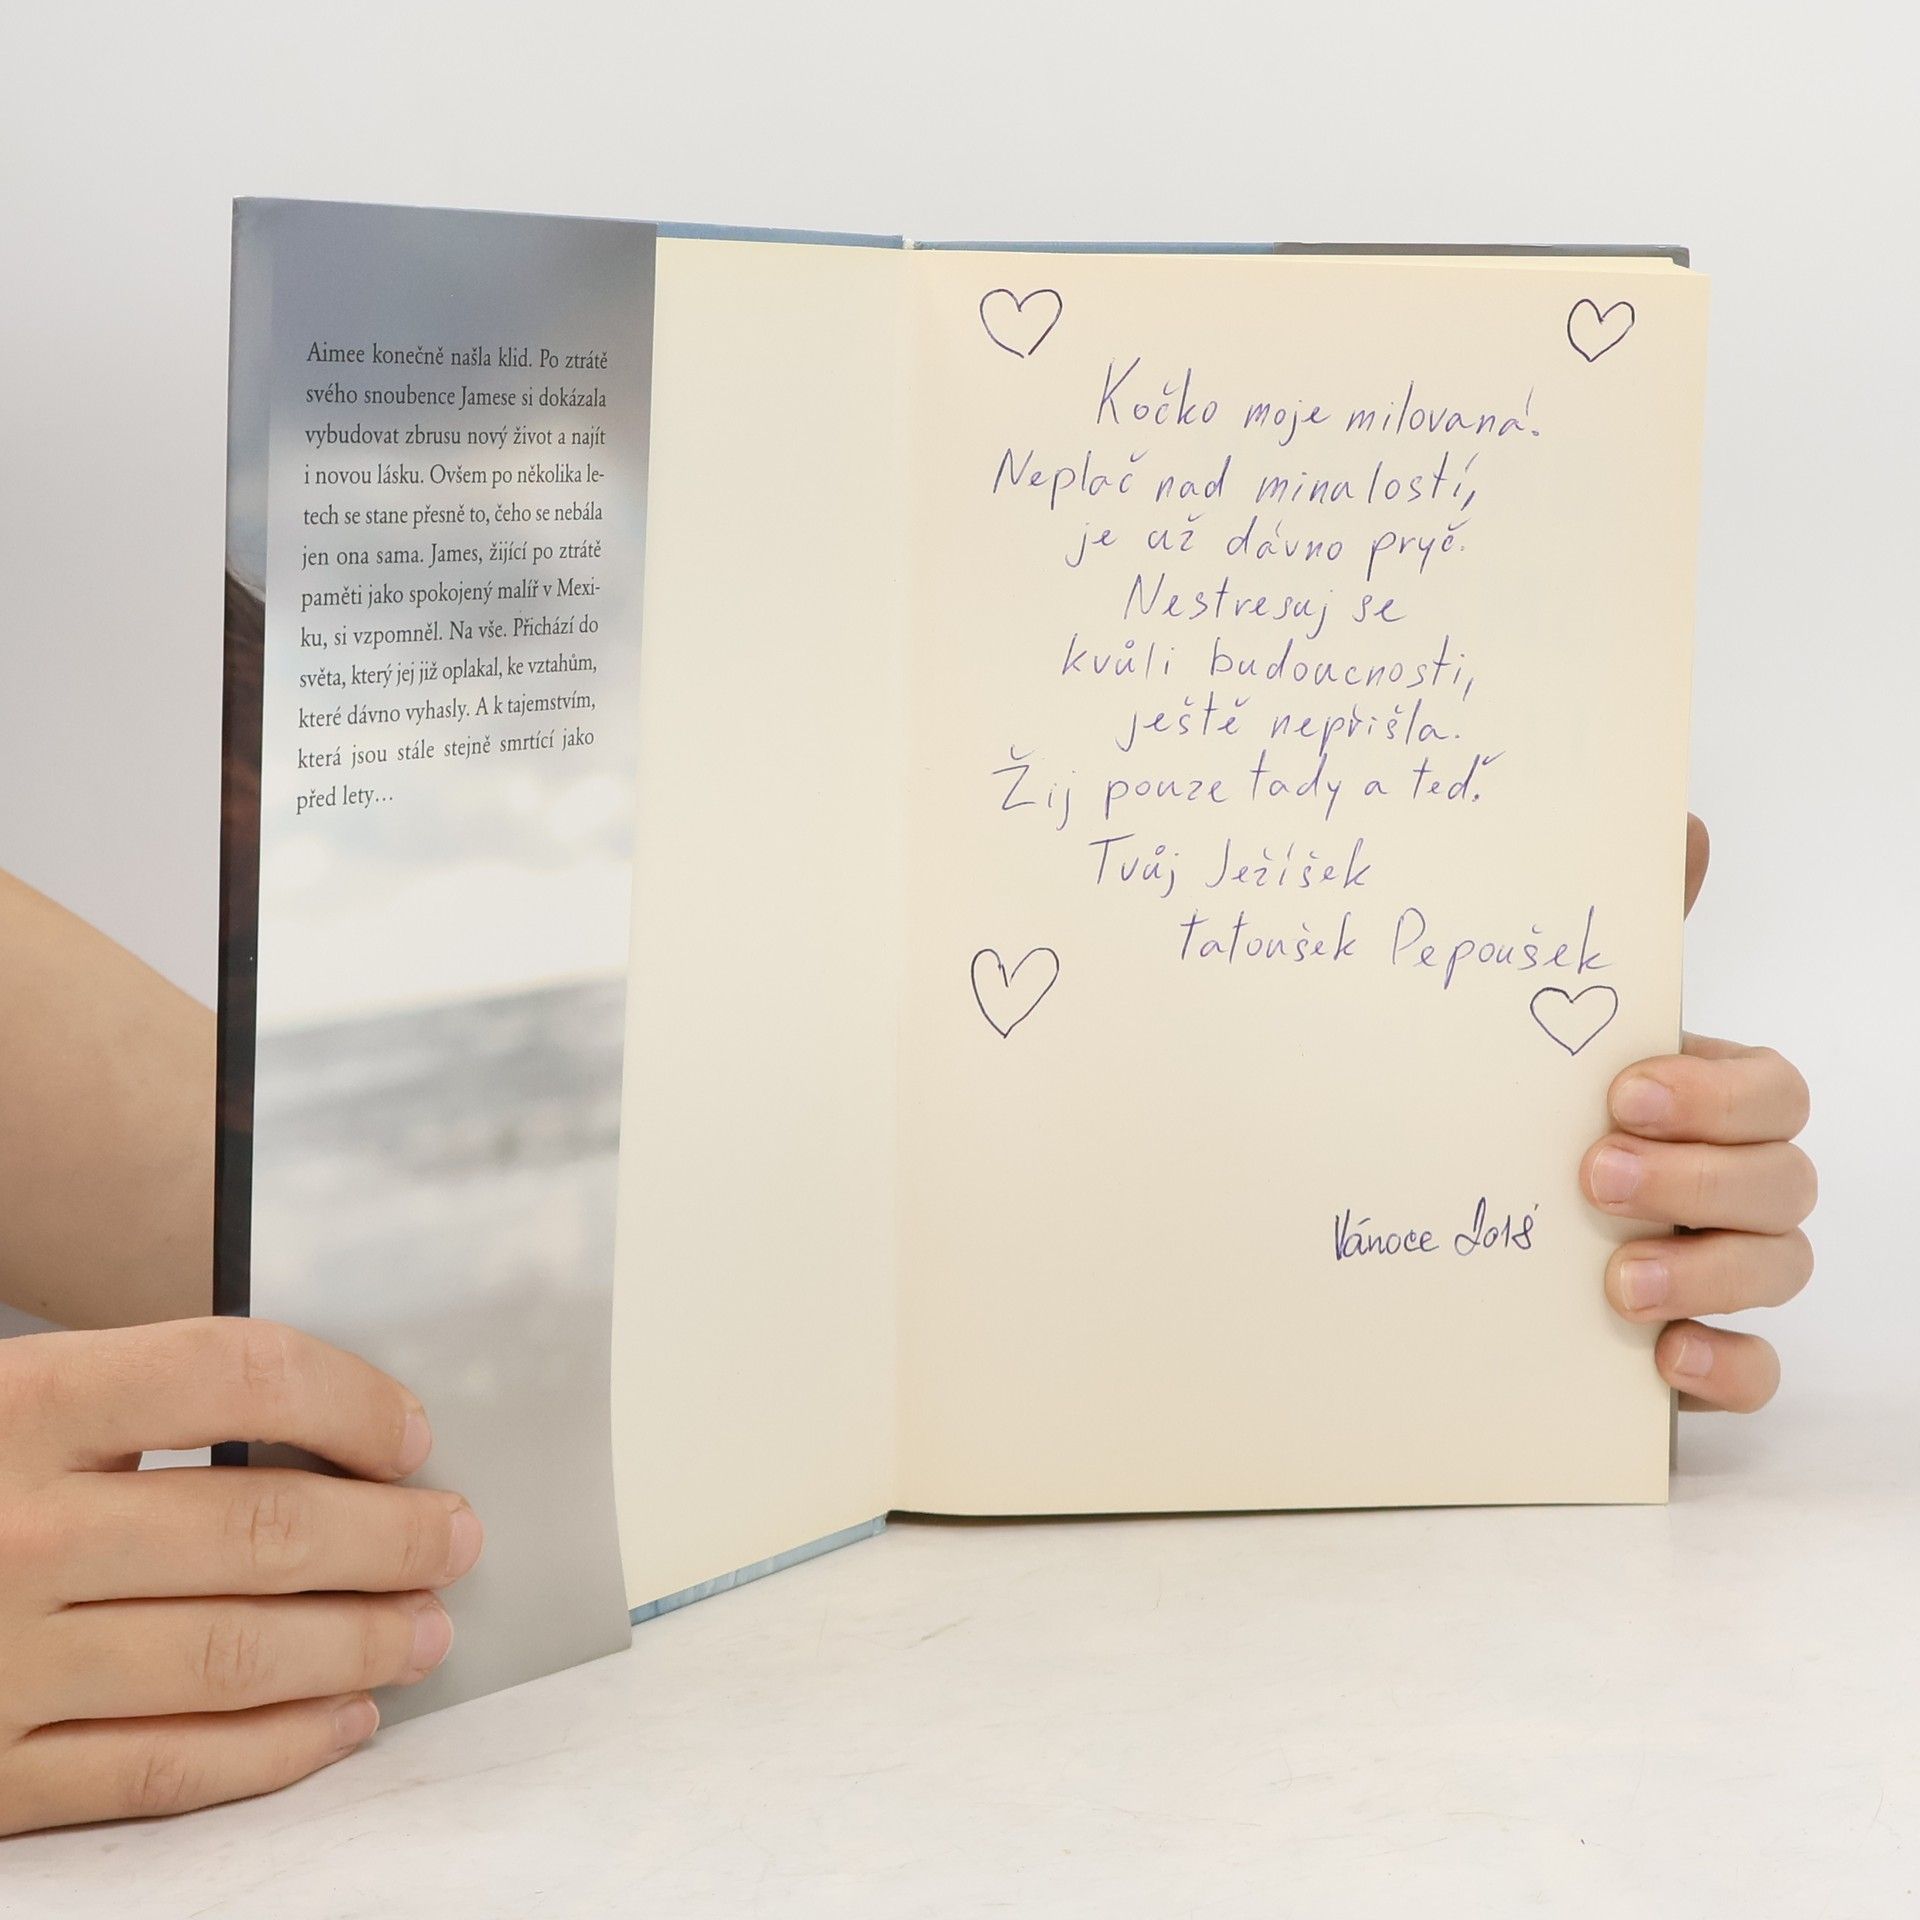 Aimee konečně našla klid. Po ztrátě
svého snoubence Jamese si dokázala
vybudovat zbrusu nový život a najít
i novou lásku. Ovšem po několika le-
tech se stane přesně to, čeho se nebála
jen ona sama. James, žijící po ztrátě
paměti jako spokojený malíř v Mexi-
ku, si vzpomněl. Na vše. Přichází do
světa, který jej již oplakal, ke vztahům,
které dávno vyhasly. A k tajemstvím,
která jsou stále stejně smrtící jako
před lety…
Kočko moje milovaná!
Neplač nad minulostí,
je už dávno pryč.
Nestresuj se
kvůli budoucnosti,
ještě nepřišla.
Žij pouze tady a teď.
Tvůj Ježíšek
tatoušek Pepoušek
Vánoce 2018